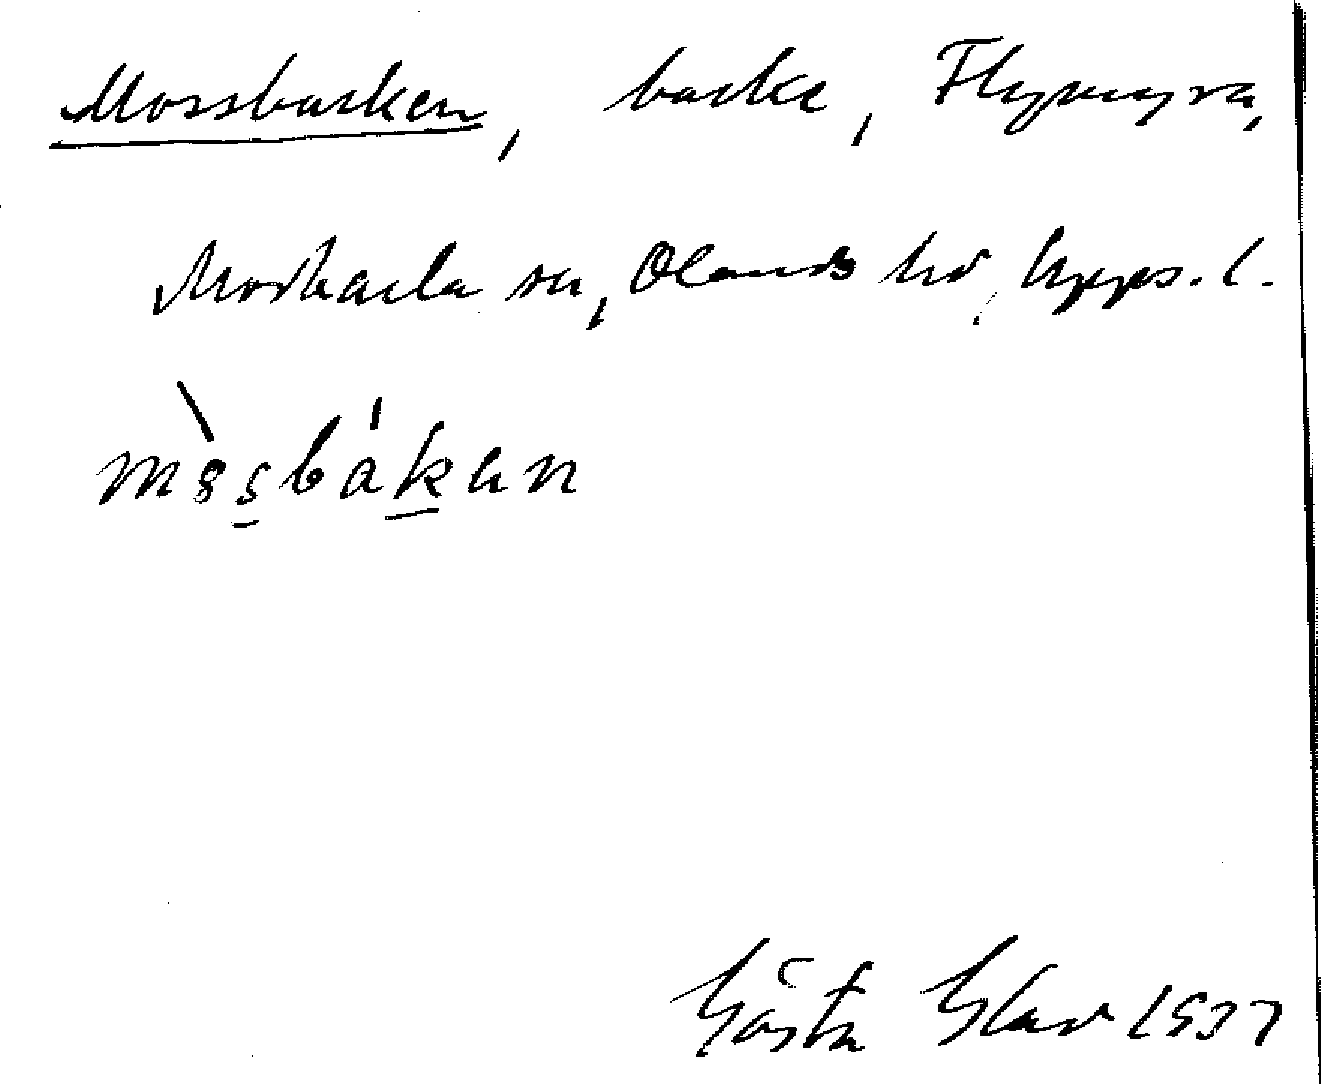 Mossbacken, backe, Flymyra,
Morkarla sn, Olands hd, Upps. l.
mòsbákan
Gösta Glav 1937